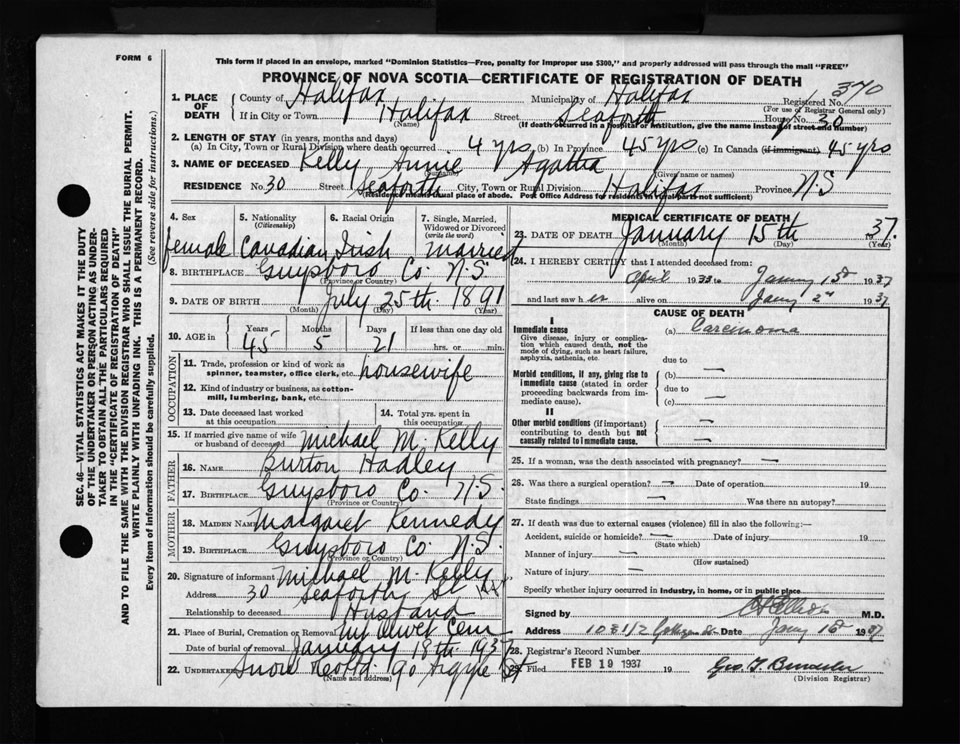 FORM 6
This form if placed in an envelope, marked "Dominion Statistics—Free, penalty for improper use $300," and properly addressed will pass through the mail "FREE"
PROVINCE OF NOVA SCOTIA—CERTIFICATE OF REGISTRATION OF DEATH
SEC. 46—VITAL STATISTICS ACT MAKES IT THE DUTY
OF THE UNDERTAKER OR PERSON ACTING AS UNDER-
TAKER TO OBTAIN ALL THE PARTICULARS REQUIRED
IN THE "CERTIFICATE OF REGISTRATION OF DEATH"
AND TO FILE THE SAME WITH THE DIVISION REGISTRAR WHO SHALL ISSUE THE BURIAL PERMIT.
WRITE PLAINLY WITH UNFADING INK. THIS IS A PERMANENT RECORD.
Every item of information should be carefully supplied. (See reverse side for instructions.)
1. PLACE OF DEATH County of Halifax Municipality of Halifax Registered No. 370
(For use of Registrar General only)
If in City or Town Halifax Street Seaforth House No. 30
(Name) (If death occurred in a hospital or institution, give the name instead of street and number)
2. LENGTH OF STAY (in years, months and days)
(a) In City, Town or Rural Division where death occurred 4 yrs (b) In Province 45 yrs (c) In Canada (if immigrant) 45 yrs
3. NAME OF DECEASED Kelly Annie Agatha
(Surname) (Given name or names)
RESIDENCE No. 30 Street Seaforth City, Town or Rural Division Halifax Province N.S
(Residence means usual place of abode. Post Office Address for residents in rural parts not sufficient)
4. Sex 5. Nationality (Citizenship) 6. Racial Origin 7. Single, Married, Widowed or Divorced (write the word)
female Canadian Irish married
8. BIRTHPLACE Guysboro Co. N.S.
(Province or Country)
9. DATE OF BIRTH July 25th 1891
(Month) (Day) (Year)
10. AGE in Years Months Days If less than one day old
45 5 21 hrs. or min.
OCCUPATION
11. Trade, profession or kind of work as spinner, teamster, office clerk, etc. housewife
12. Kind of industry or business, as cotton-mill, lumbering, bank, etc.
13. Date deceased last worked at this occupation 14. Total yrs. spent in this occupation
15. If married give name of wife or husband of deceased Michael M. Kelly
FATHER
16. NAME Burton Hadley
17. BIRTHPLACE Guysboro Co. N.S.
(Province or Country)
MOTHER
18. MAIDEN NAME Margaret Kennedy
19. BIRTHPLACE Guysboro Co N.S.
(Province or Country)
20. Signature of informant Michael M. Kelly
Address 30 Seaforth St
Relationship to deceased Husband
21. Place of Burial, Cremation or Removal Mt Olivet Cem
Date of burial or removal January 18th 1937
22. UNDERTAKER Snow 90 Argyle St
(Name and address)
MEDICAL CERTIFICATE OF DEATH
23. DATE OF DEATH January 15th 1937.
(Month) (Day) (Year)
24. I HEREBY CERTIFY that I attended deceased from:
April 1933 to 1937
and last saw her alive on 1937
CAUSE OF DEATH
I
Immediate cause (a) Carcinoma
Give disease, injury or complication which caused death, not the mode of dying, such as heart failure, asphyxia, asthenia, etc.
due to
Morbid conditions, if any, giving rise to immediate cause (stated in order proceeding backwards from immediate cause). (b) —
due to
(c) —
II
Other morbid conditions (if important) contributing to death but not causally related to immediate cause —
25. If a woman, was the death associated with pregnancy? —
26. Was there a surgical operation? — Date of operation 19
State findings — Was there an autopsy?
27. If death was due to external causes (violence) fill in also the following:—
Accident, suicide or homicide? — Date of injury 19
(State which)
Manner of injury —
(How sustained)
Nature of injury —
Specify whether injury occurred in Industry, in home, or in public place
Signed by M.D.
Address 103 1/2 Date 1937
28. Registrar's Record Number
29. Filed FEB 19 1937
(Division Registrar)